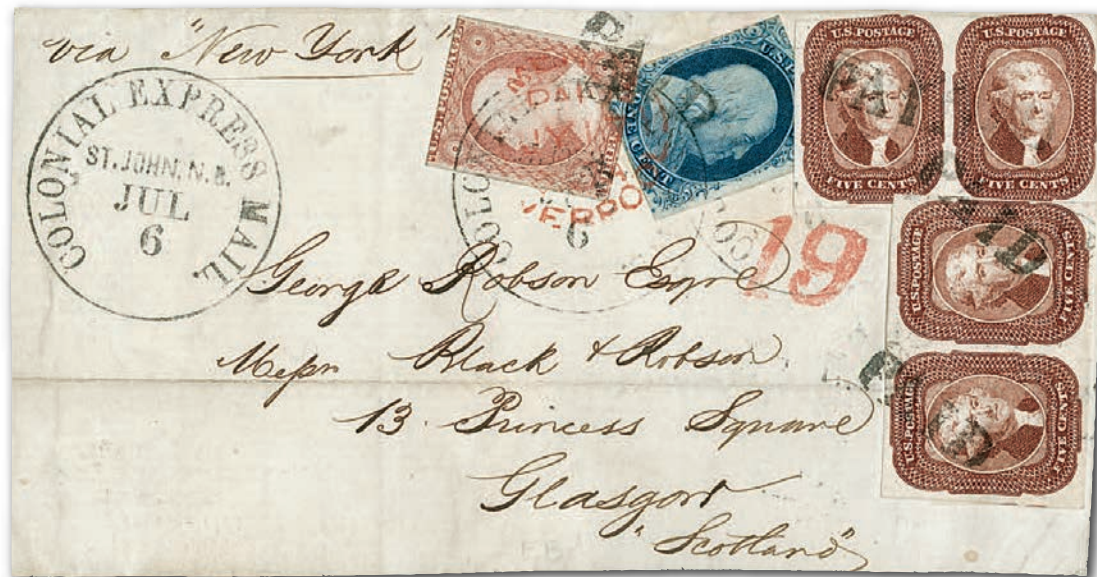 via "New York"
COLONIAL EXPRESS MAIL
ST. JOHN. N.B.
JUL
6
PAID
U.S. POSTAGE
FIVE CENTS
U.S. POSTAGE
FIVE CENTS
PAID
U.S. POSTAGE
FIVE CENTS
PAID
U.S. POSTAGE
FIVE CENTS
PAID
ONE CENT
6
19
George Robson Esqre
Messrs Black & Robson
13. Princess Square
Glasgow
"Scotland"